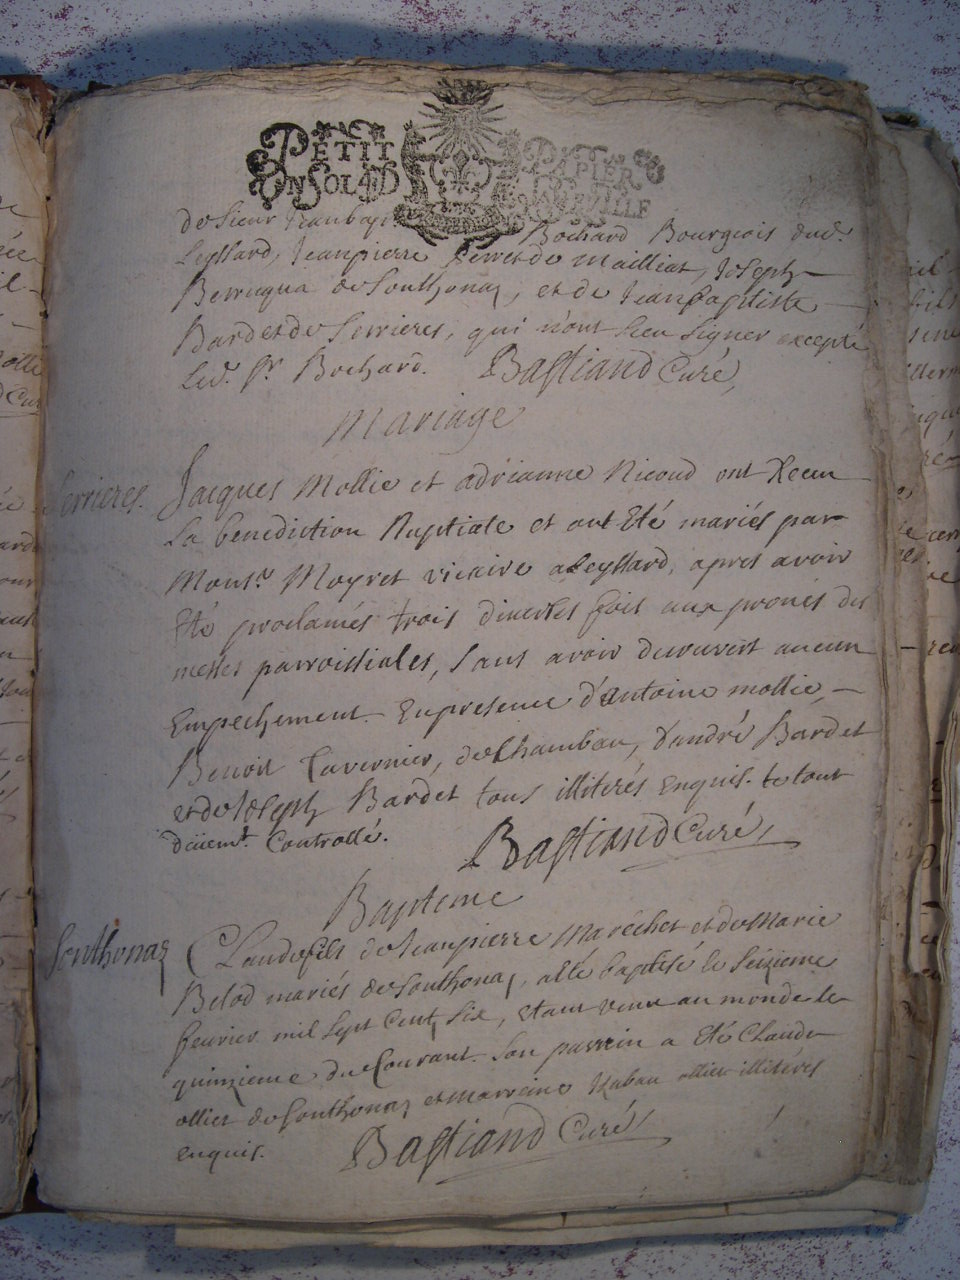 PETIT PAPIER
UN SOL 4 D
de sieur Jeanbap Bochard Bourgeois dud.
Leyssard, Jeanpierre Perret de Mailliat, Joseph
Berrugua de Southonaz, et de Jeanbaptiste
Bardet de Serrieres, qui n'ont sceu signer excepté
led. Sr. Bochard. Bastiand Curé,
Mariage
Serrieres. Jacques Mollie et adrianne Nicoud ont Receu
La benediction Nuptiale et ont Eté mariés par
Monsr. Moyret vicaire a Leyssard, apres avoir
Eté proclamés trois diverses fois aux prones des
messes parroissiales, sans avoir decouvert aucun
Empechement. En presence d'antoine mollie,
Benoit Tavernier, de Chambau, d'andré Bardet
et de Joseph Bardet tous illiterés Enquis. le tout
düement Controllé. Bastiand Curé,
Bapteme
Southonaz Claude fils de Jeanpierre Maréchet et de Marie
Belod mariés de Southonaz, a été baptisé le Seizieme
fevrier mil sept centz six, etant venu au monde le
quinzieme du Courant. Son parrein a Eté Claude
ollier de Southonaz et marreine ollier illitérés
enquis. Bastiand Curé